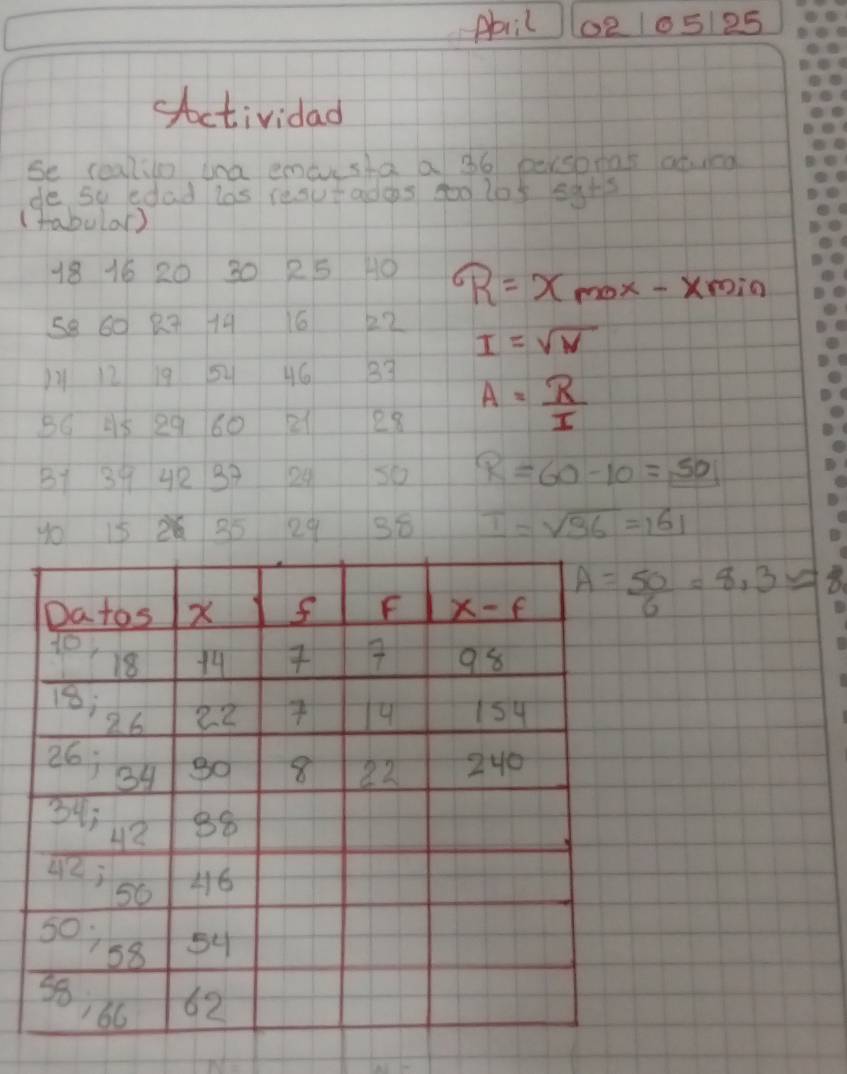 Abril 02/05/25
Actividad
Se realizo una encuesta a 36 personas acerca
de su edad los resultados son los sgts
(tabular)
18 16 20 30 25 40
58 60 27 14 16 22
12 19 54 46
45 29 60 21 28
39 42 37 24 50
15 26 35 29 38
R = X max - x min
I = √N
A = R/I
R = 60 - 10 = 50
I = √36 = 161
A = 50/6 = 8,3 ≈ 8
Datos x f F x-f
10, 18 14 7 7 98
18; 26 22 7 14 154
26; 34 30 8 22 240
34; 42 38
42; 50 46
50; 58 54
58, 66 62